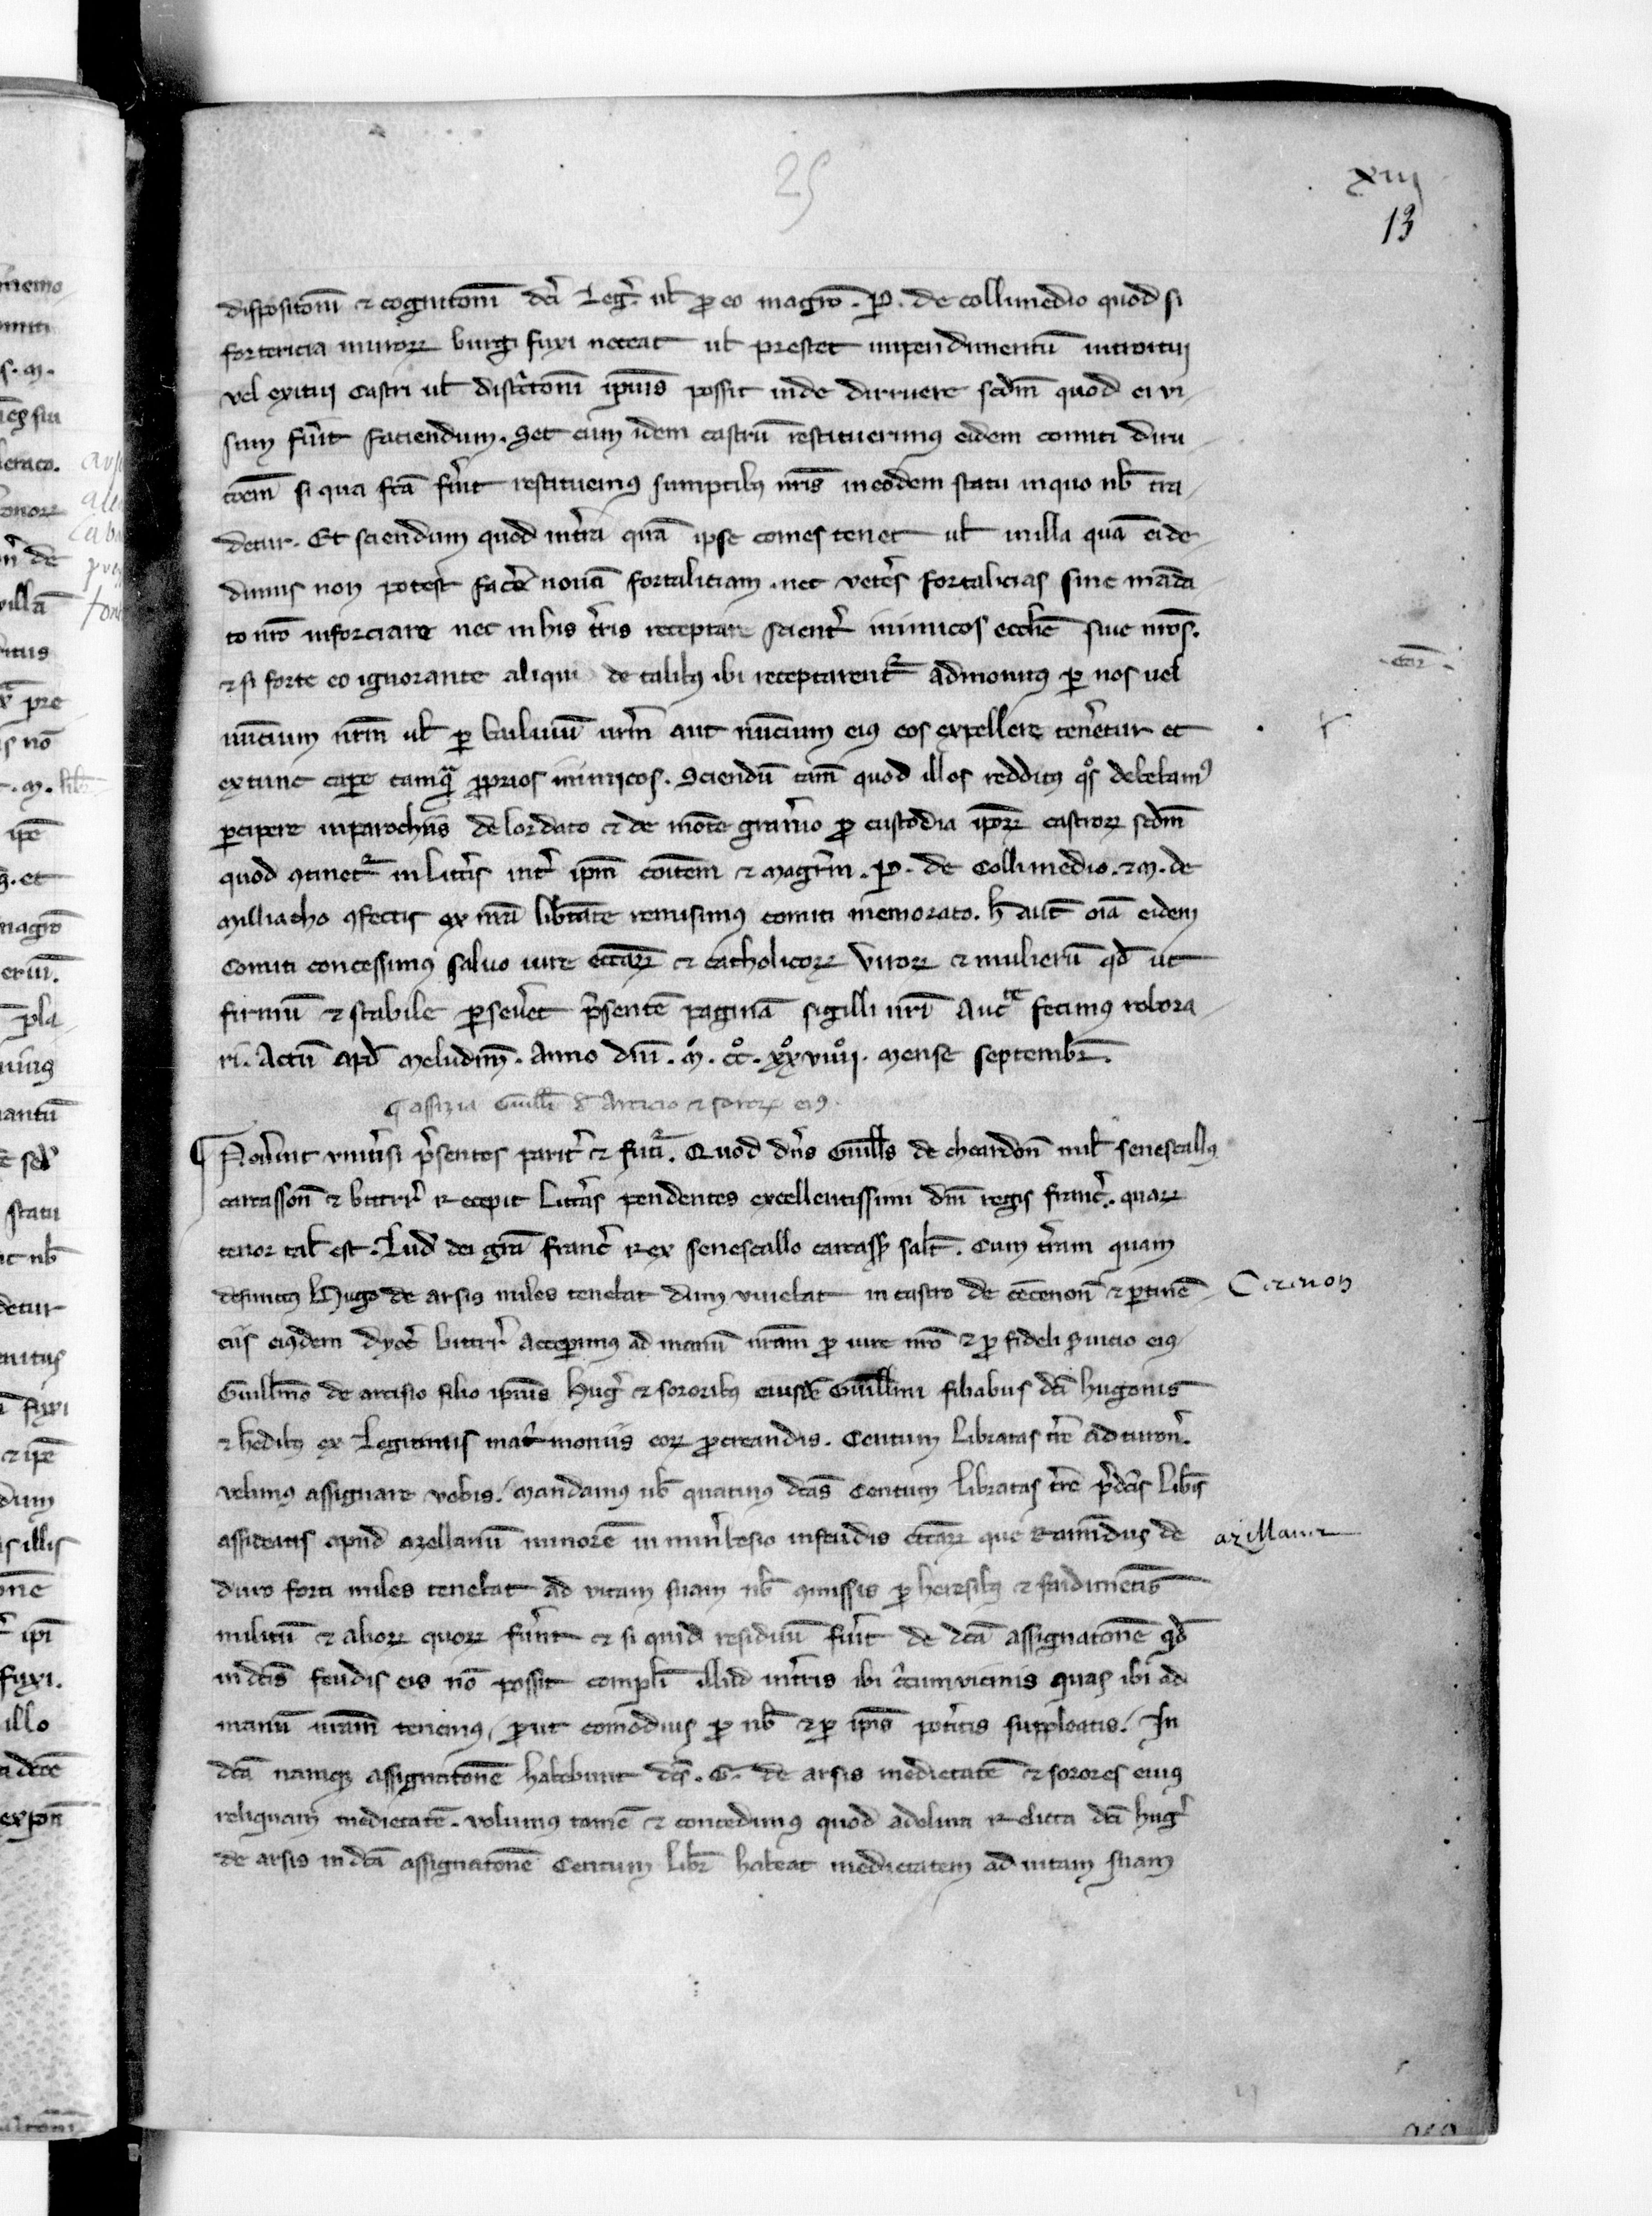 25
xiij
13
dispositoni & cognitoni dci Leg. ul pro eo magro. P. de collimedio quod si
fortericia muror burgi fuxi noceat ul prestet impendimentū introitui
vel exitui castri ul districtoni ipius possit inde dirruere scdm quod ei vi
sum fuit faciendum. Set cum idem castrū restituerimus eidem comiti diru
tōem si qua fcā fuit restituemus sumptibus nris in eodem statu in quo nb tra
detur. Et sciendum quod in tra quā ipse comes tenet ul in illa quā ei de
dimus non potest facere nouā fortaliciam. nec veteres fortalicias sine mada
to nro inforciare nec in his tris receptare scienter inimicos ecclie siue nros.
& si forte eo ignorante aliqui de talibus ibi receptarentr admonitus per nos uel
nuncium nrm ul per bailiuū nrm aut nuncium eius eos expellere teneretur et
extunc capere tamquam proprios inimicos. Sciendū tam quod illos redditus qos debebamus
percipere in parochiis de lordato & de monte granerio pro custodia ipor castror scdm
quod continetr in litteris inter ipm comitem & magrm. P. de Collimedio. & M. de
Milliacho confectis ex nra libertate remisimus comiti memorato. h aut oia eidem
Comiti concessimus saluo iure eccar & catholicor viror & mulierū qd ut
firmū & stabile perseueret presentē paginā sigilli nri Aucte fecimus robora
ri. Actū apd Meludun. Anno dni. M. cc. xx viiij. Mense septembr.
¶ assizia Guilli d Arcicio & soror eius
¶ Nouerint vniuersi presentes pariter & futuri. Quod dns Guills de cheardon mil senescallus
carcasson & bitterr Recepit Litteras pendentes excellentissimi dni regis franc. quar
tenor tal est. Lud dei gra franc Rex senescallo carcass salt. Cum terram quam
defunctus Hugo de arsis miles tenebat dum viuebat in castro de cecenon & pertinē
ciis eiusdem dyoc bitterr Acceperimus ad manū nram pro iure nro & pro fideli seruicio eius
Guillmo de arcisio filio ipius Hug & sororibus eiusdē Guillmi filiabus dci hugonis
& hedibus ex Legitimis matrimoniis eor procreandis. Centum Libratas tre ad turon.
velimus assignare vobis. mandamus nb quatinus dcas Centum libratas tre pdcis libis
assideatis apud azellanū minorē in minerbesio in feudis eccar que Raimūdus de
duro forti miles tenebat ad vitam suam nb commissis per heresibus & faidimētis
militū & alior quor fuerūt & si quid residuū fuerit de dca assignatone qd
in dcis feudis eis nō possit compleri illud in terris ibi circumvicinis quas ibi ad
manū nram tenemus, prout comodius pro nb & per ipis poteritis suppleatis. In
dca namque assignatonē habebunt dcs. G. de arsis medietatē & sorores eius
reliquam medietatē. volumus tamē & concedimus quod adelina Relicta dci hug
de arsis in dca assignatonē Centum libr habeat medietatem ad uitam suam
Cecenon
azillanu